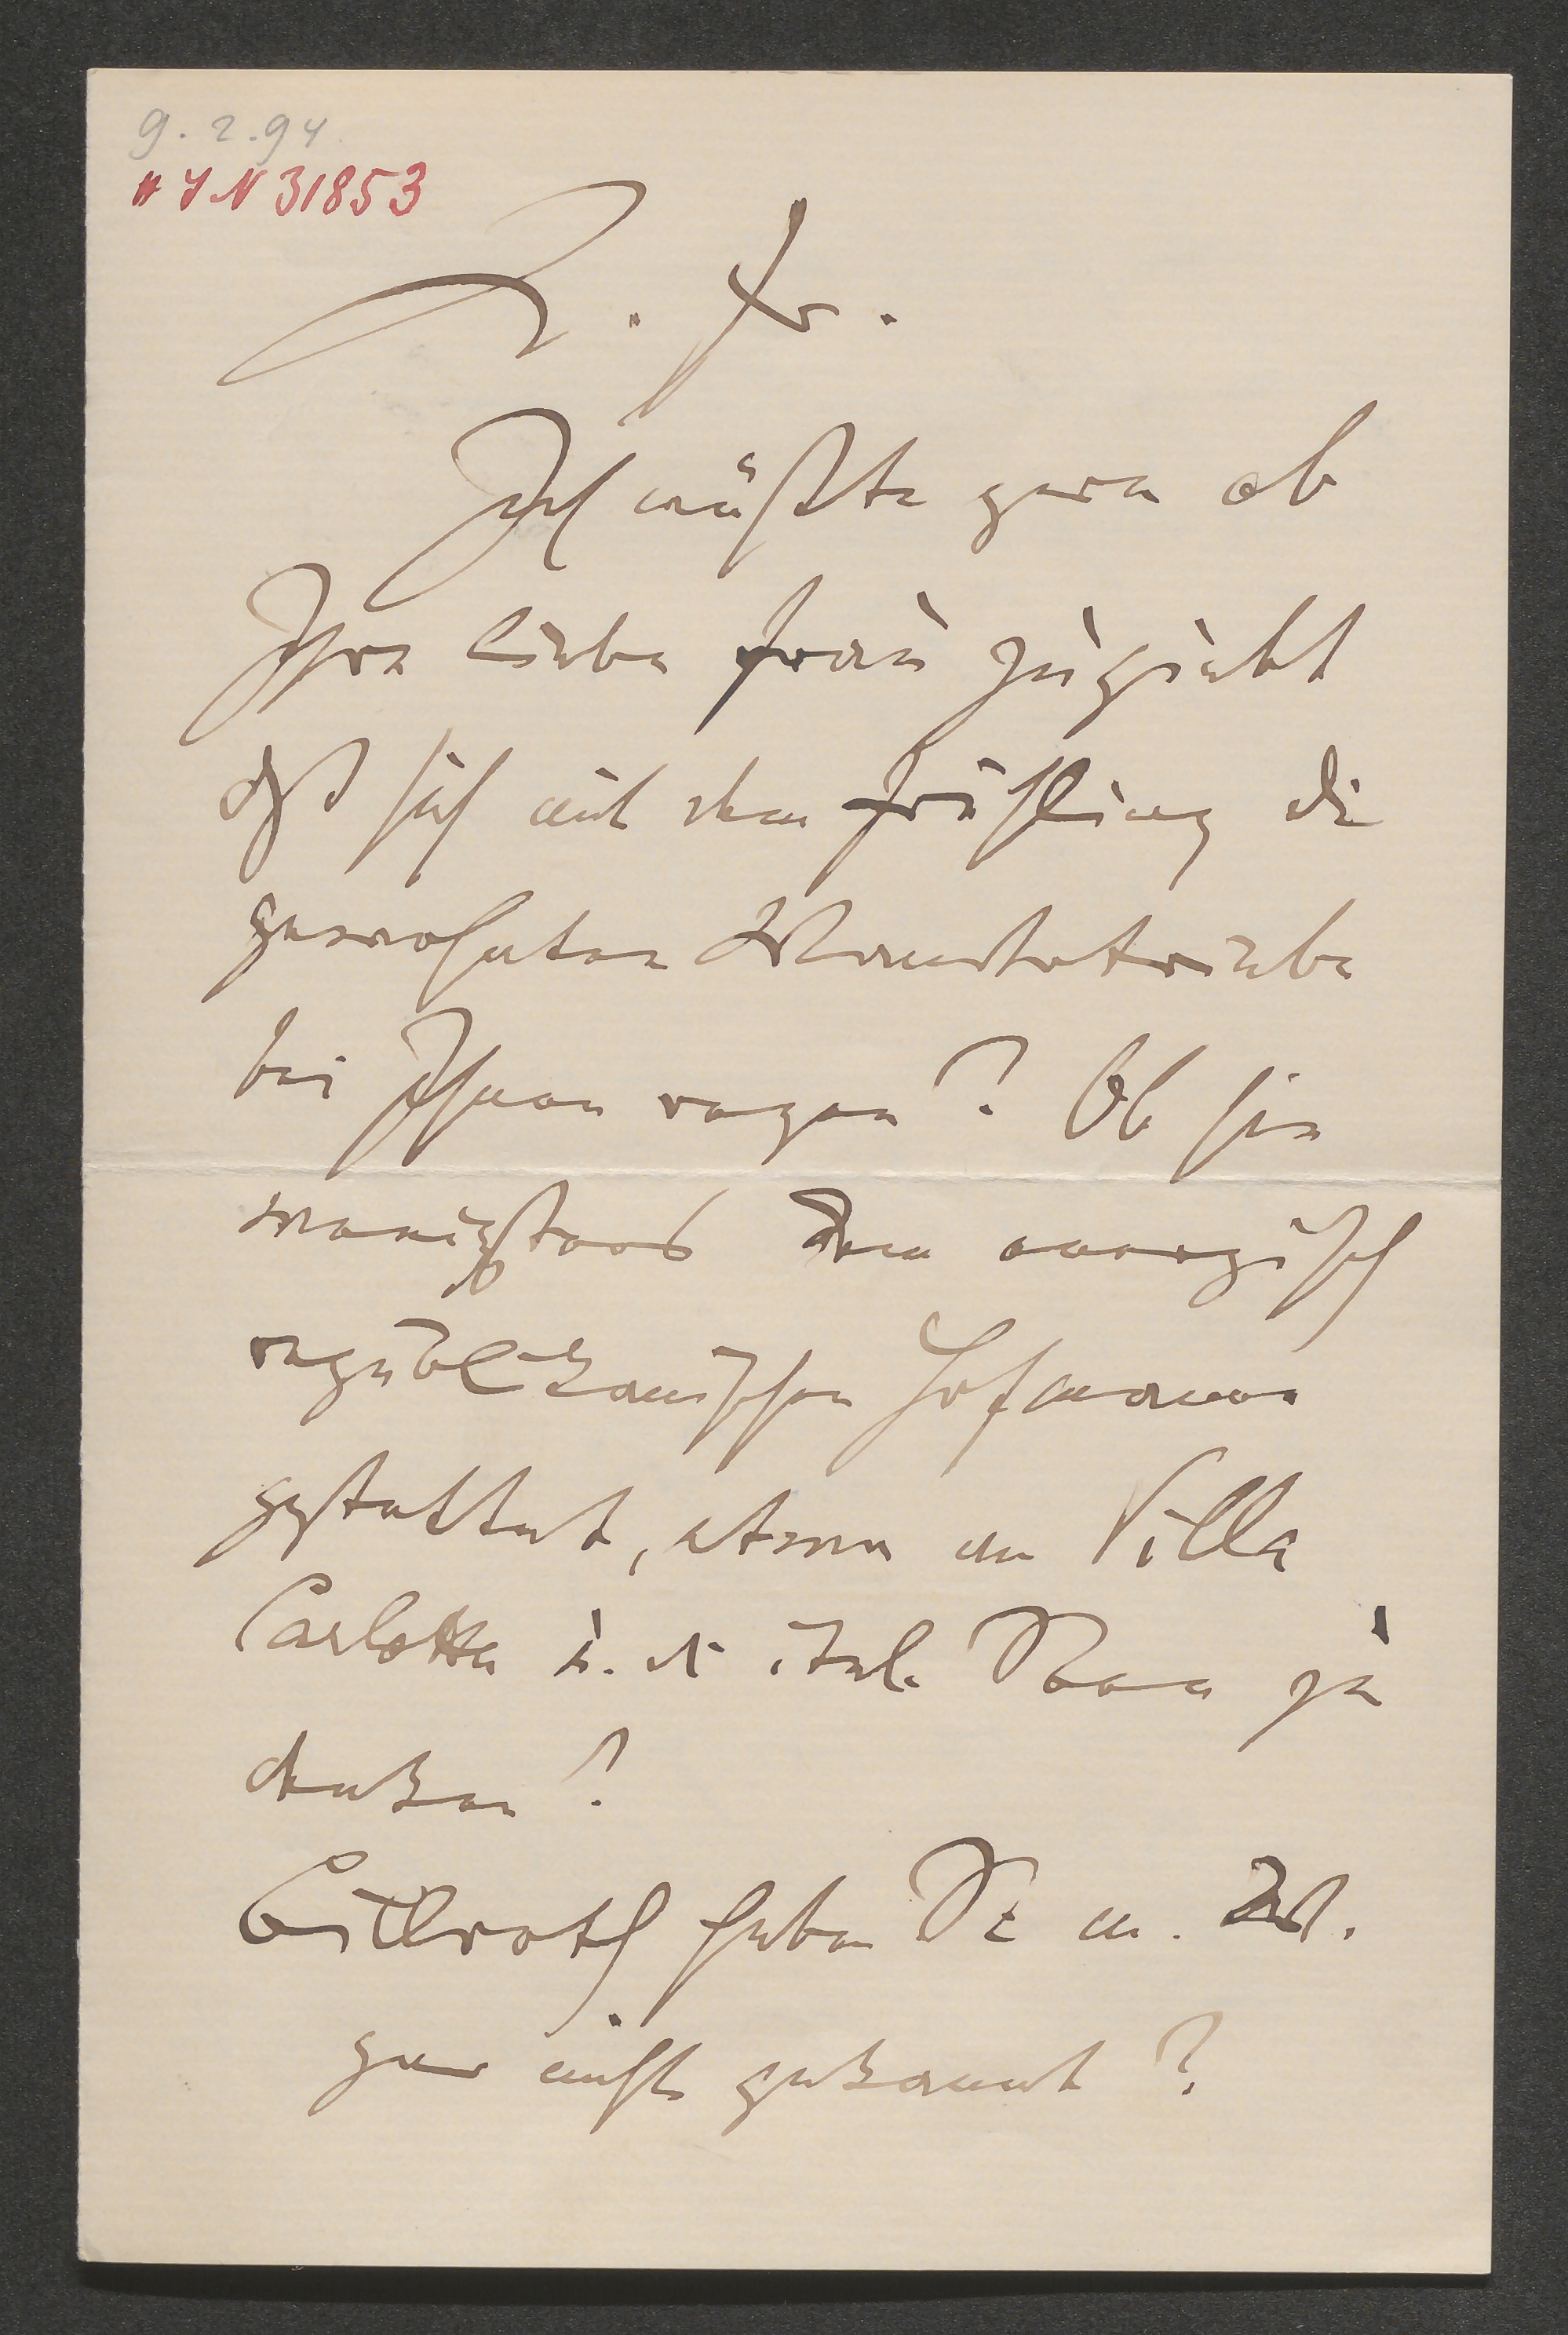 9.2.94
# IN 31853
L. Fr.
Ich wüßte gern ob
Ihre liebe Frau zugiebt
daß sich mit dem Frühling die
gewohnten Wandertriebe
bei Ihnen regen? Ob sie
wenigstens dem energisch
republikanischen Hofmann
gestattet, etwa an Villa
Carlotta u. d. ital. Seen zu
denken?
Billroth haben Sie u.
gar nicht gekannt?